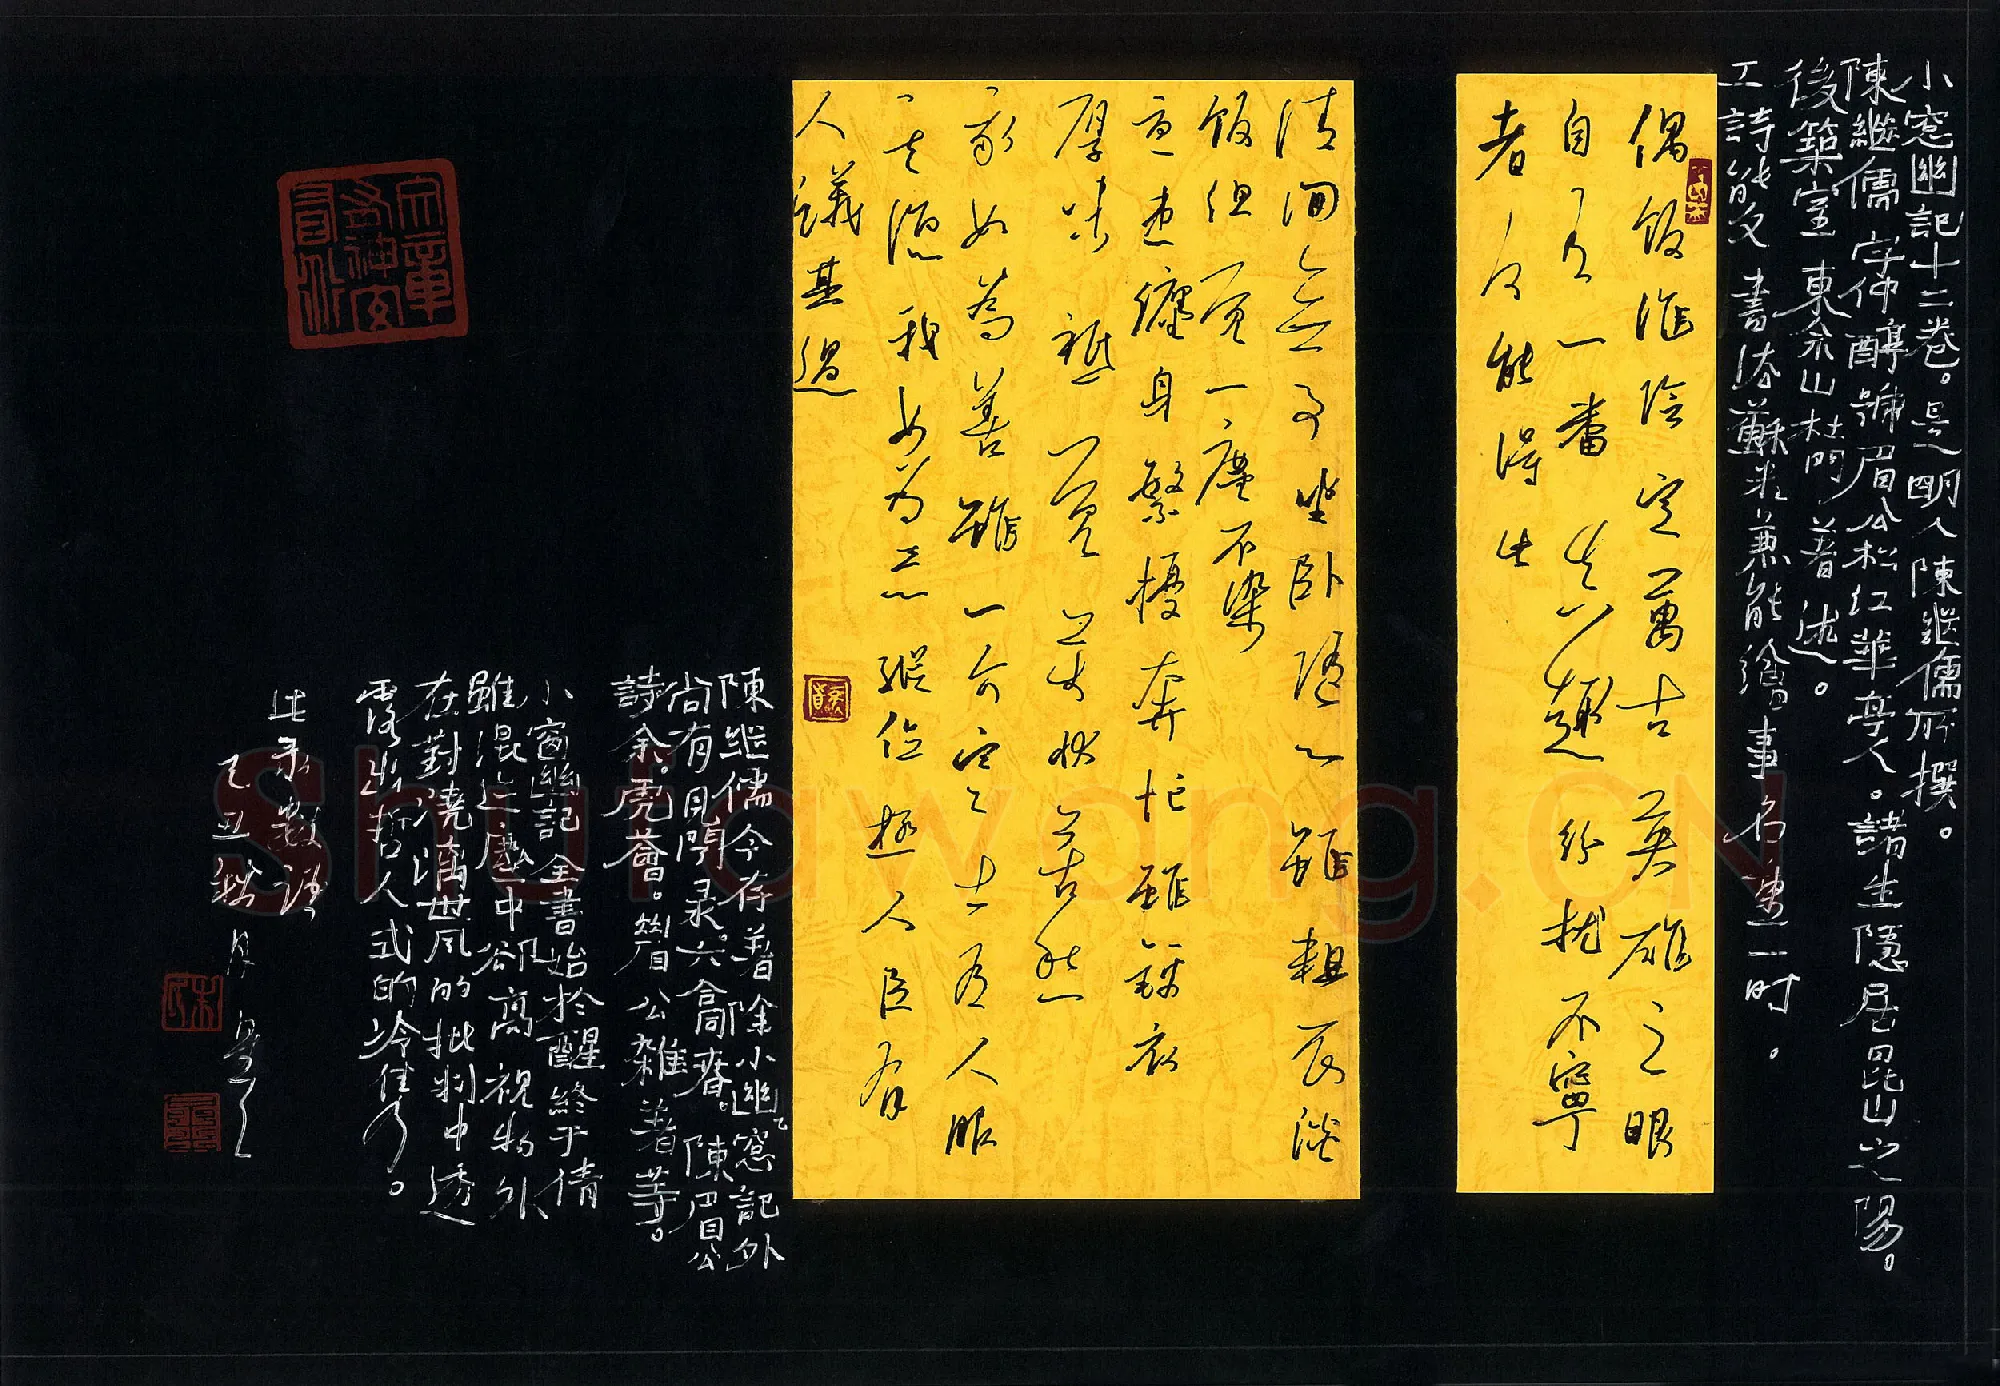 小窓幽記十二卷。是明人陳继儒所撰。
陳繼儒字仲醇號眉公松江華亭人。諸生隱居昆山之陽。
後築室東佘山杜門著述。
工詩能文書法蘇米兼能繪事名重一时。
偶飯淮陰定萬古英雄之眼
自有一番真趣紛扰不寧
者何能得此
清闲無事坐卧随心雖粗衣淡
饭但觉一塵不染
憂患纏身繁擾奔忙雖錦衣
厚味衹觉万状苦愁
我如為善雖一介寒士有人服
其德我如为恶縱位极人臣有
人議其過
陳继儒今存著除小幽窓記外
尚有見聞录六合同春。陳眉公
詩余。虎薈。眉公雜著等。
小窗幽記全書始於醒終于倩
雖混迹塵中卻高視物外
在對澆漓世風的批判中透
露出哲人式的冷隽。
此录數語
乙丑秋月
Shufawang.CN